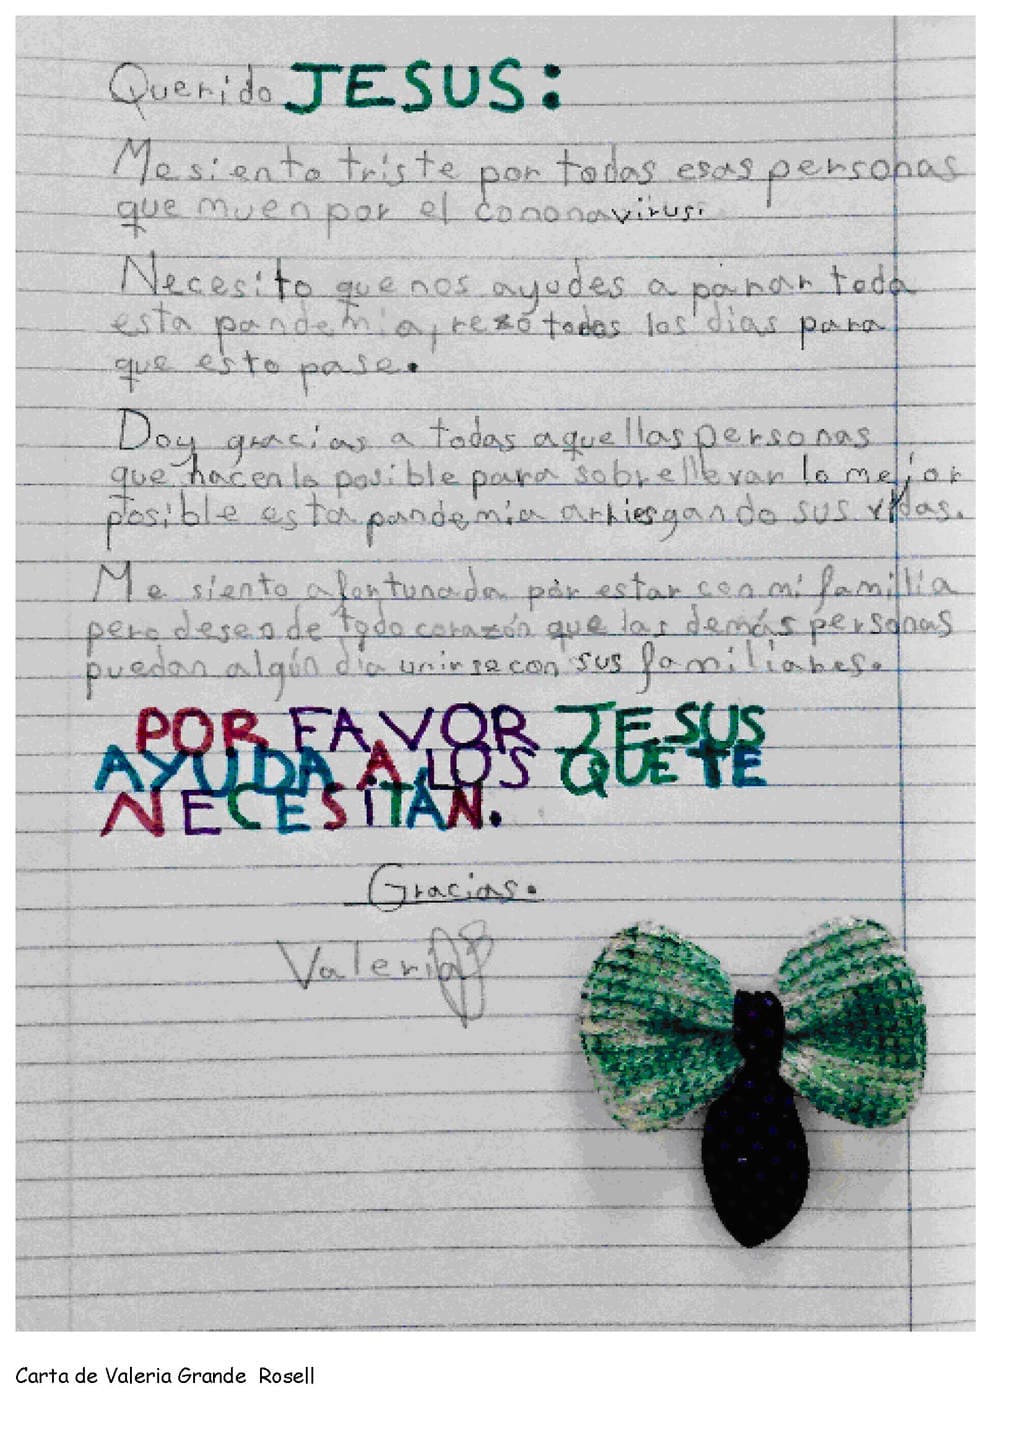 Querido JESUS:
Me siento triste por todas esas personas
que mueren por el coronavirus.
Necesito que nos ayudes a parar toda
esta pandemia, rezó todos los días para
que esto pase.
Doy gracias a todas aquellas personas
que hacen lo posible para sobrellevar lo mejor
posible esta pandemia arriesgando sus vidas.
Me siento afortunada por estar con mi familia
pero deseo de todo corazón que las demás personas
puedan algún día unirse con sus familiares.
POR FAVOR JESUS
AYUDA A LOS QUE TE
NECESiTAN.
Gracias.
Valeria
Carta de Valeria Grande Rosell